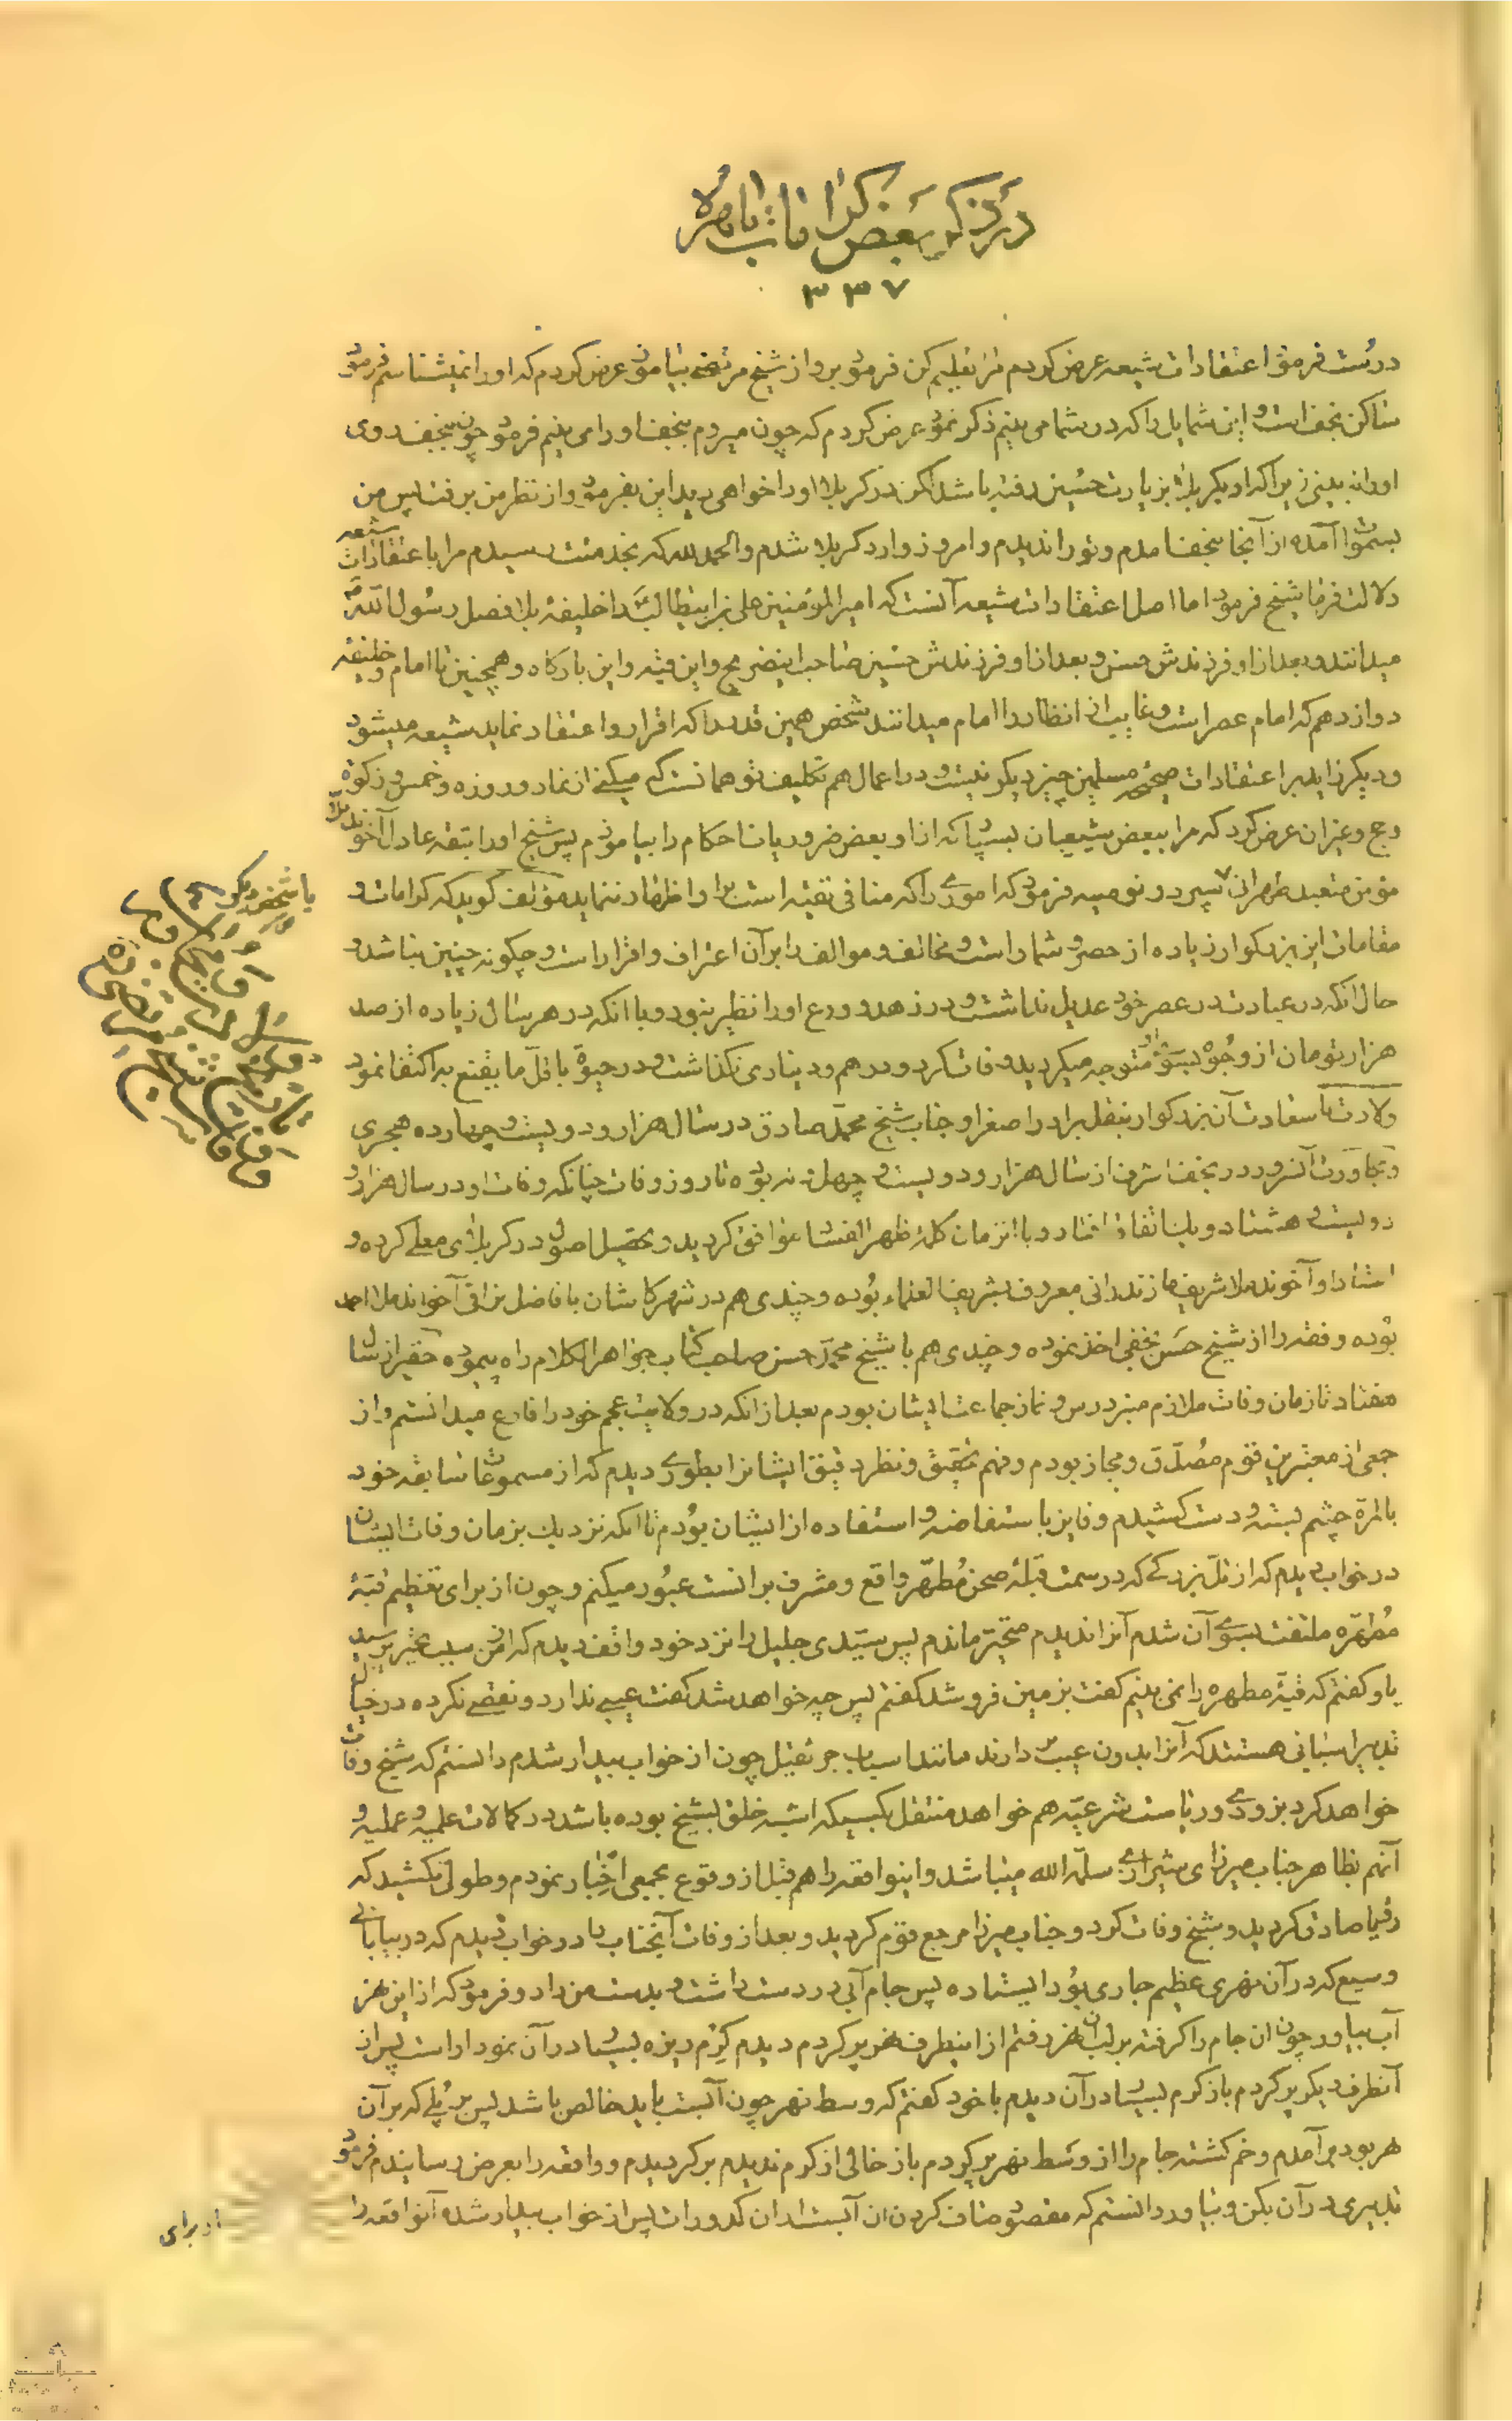 در ذکر بعض کرامات باهره
۳۳۷
درست فرمود اعتقادات شیعه عرض کردم مرا تعلیم کن فرمود برو از شیخ مرتضی بیاموز عرض کردم که او را نمیشناسم فرمود
ساکن نجف است و این شمایل را که در شما می بینم ذکر نمود عرض کردم که چون میروم بنجف او را می بینم فرمود چون بنجف روی
او را نه بینی زیرا که او بکربلا بزیارت حسین رفته باشد لکن در کربلا او را خواهی دید این بفرمود و از نظر من برفت پس من
بسمت آمده از آنجا بنجف امدم و تو را ندیدم و امروز وارد کربلا شدم و الحمد لله که بخدمتت رسیدم مرا باعتقادات شیعه
دلالت فرما شیخ فرمود اما اصل اعتقادات شیعه آنست که امیر المؤمنین علی بن ابیطالب را خلیفهٔ بلا فصل رسول الله
میدانند و بعد از او فرزندش حسن و بعد از او فرزندش حسین صاحب این ضریح و این قبه و این بارگاه و همچنین تا امام و خلیفه
دوازدهم که امام عصر است و غایب از انظار را امام میدانند شخص همین قدر را که اقرار و اعتقاد نماید شیعه میشود
و دیگر زاید بر اعتقادات صحیحه مسلمین چیز دیگر نیست و در اعمال هم تکلیف تو همانست که میکنی از نماز و روزه و خمس و زکوة
و حج و غیر ان عرض کرد که مرا ببعض شیعیان بسپار که از او بعض ضروریات احکام را بیاموزم پس شیخ او را بثقه عادل آخوند ملا
مؤمن متعبد طهرانی سپرد و توصیه فرمود که اموری را که منافی تقیه است برا و اظهار ننماید مؤلف گوید که کرامات و
مقامات این بزرگوار زیاده از حصر و شمار است و مخالف و موالف را بر آن اعتراف و اقرار است و چگونه چنین نباشد و
حال انکه در عبادت در عصر خود عدیل نداشت و در زهد و ورع او را نظیر نبود و با انکه در هر سال زیاده از صد
هزار تومان از وجوه بسوی او متوجه میگردید وفات کرد و درهم و دیناری نگذاشت و در حیوة باقل ما یقنع به اکتفا نمود
ولادت با سعادت آن بزرگوار بنقل برادر اصغر او جناب شیخ محمد صادق در سال هزار و دویست و چهارده هجری
و مجاورت آنسرور در نجف اشرف از سال هزار و دویست و چهل نه بوده تا روز وفات چنانکه وفات او در سال هزار و
دویست و هشتاد و یک اتفاق افتاد و با انزمان کلمهٔ ظهر الفساد موافق گردید و تحصیل اصول در کربلای معلی کرده و
استاد او آخوند ملا شریف مازندرانی معروف بشریف العلماء بوده و چندی هم در شهر کاشان با فاضل نراقی آخوند ملا احمد
بوده و فقه را از شیخ حسن نجفی اخذ نموده و چندی هم با شیخ محمد حسن صاحب کتاب جواهر الکلام راه پیموده حقیر از سال
هفتاد تا زمان وفات ملازم منبر درس و نماز جماعت ایشان بودم بعد از انکه در ولایت عجم خود را فارغ میدانستم و از
جمعی از معتبرین قوم مصدق و مجاز بودم و فهم تحقیق و نظر دقیق ایشانرا بطوری دیدم که از مسموعات سابقه خود
بالمرة چشم بسته و دست کشیدم و فایز باستفاضه و استفاده از ایشان بودم تا انکه نزدیک بزمان وفات ایشان
در خواب دیدم که از تل بزرگی که در سمت قبلهٔ صحن مطهر واقع و مشرف برانست عبور میکنم و چون از برای تعظیم قبهٔ
مطهره ملتفت بسوی آن شدم آنرا ندیدم متحیر ماندم پس سیدی جلیل را نزد خود واقف دیدم که از من سبب تحیر پرسید
باو گفتم که قبهٔ مطهره را نمی بینم گفت بزمین فرو شد گفتم پس چه خواهد شد گفت عیبی ندارد و نقصی نکرده در خیال
تدبیر اسبابی هستند که آنرا بدون عیب دارند مانند اسباب جر ثقیل چون از خواب بیدار شدم دانستم که شیخ وفات
خواهد کرد بزودی و ریاست شرعیه هم خواهد منتقل بکسیکه اشبه خلق بشیخ بوده باشد در کمالات علمیه و عملیه و
آنهم بظاهر جناب میرزای شیرازی سلمه الله میباشد و اینواقعه را هم قبل از وقوع بجمعی اخبار نمودم و طولی نکشید که
رؤیا صادق گردید و شیخ وفات کرد و جناب میرزا مرجع قوم گردید و بعد از وفات آنجناب را در خواب دیدم که در بیابانی
وسیع که در آن نهری عظیم جاری بود ایستاده پس جام آبی در دست داشت و بدست من داد و فرمود که از این نهر
آب بیاور چون ان جام را گرفته بر لب ان نهر رفتم از اینطرف نهر پر کردم دیدم کرم ریزه بسیار در آن نمودار است پس از
آنطرف دیگر پر کردم باز کرم بسیار در آن دیدم با خود گفتم که وسط نهر چون آبست باید خالص باشد پس بر پلی که بر آن
نهر بود بر آمدم و خم گشته جام را از وسط نهر پر کردم باز خالی از کرم ندیدم بر گردیدم و واقعه را بعرض رسانیدم فرمود
تدبیری در آن بکن و بیاور دانستم که مقصود صاف کردن ان آبست از ان کدورات پس از خواب بیدار شده آنواقعه را
از برای